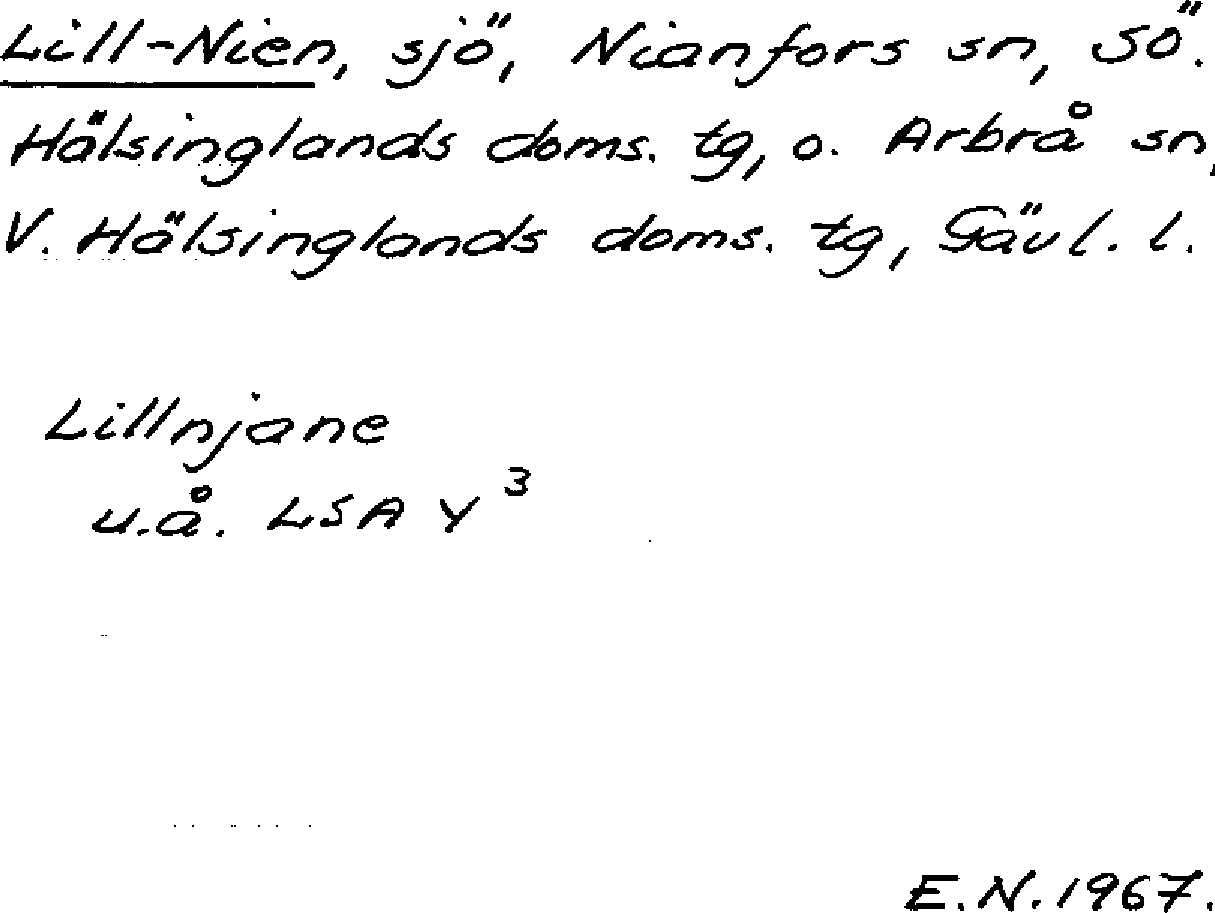 Lill-Nien, sjö, Nianfors sn, SÖ.
Hälsinglands doms. tg, o. Arbrå sn,
V. Hälsinglands doms. tg, Gävl. l.
Lillnjane
u.å. LSA Y³
E.N. 1967.